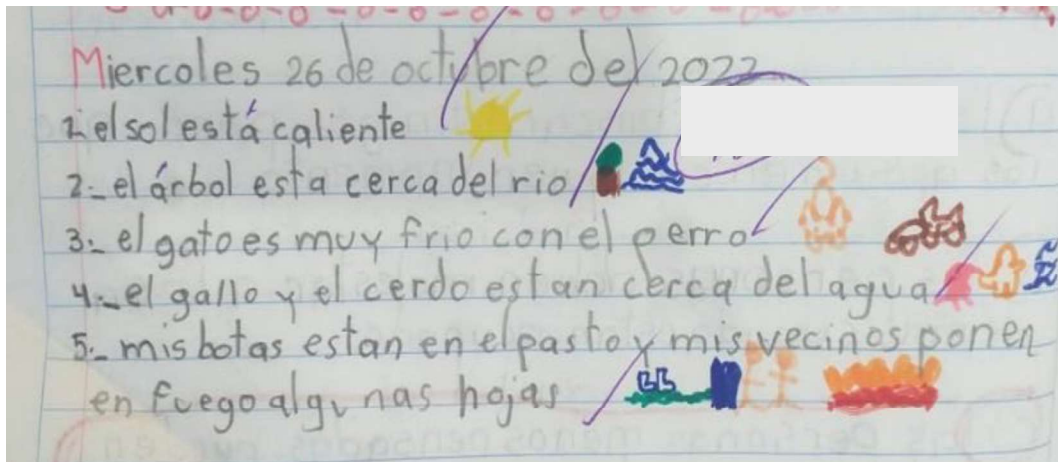 Miercoles 26 de octubre del 2022
1.- el sol está caliente
2.- el árbol esta cerca del rio
3.- el gato es muy frio con el perro
4.- el gallo y el cerdo estan cerca del agua
5.- mis botas estan en el pasto y mis vecinos ponen
en fuego algunas hojas